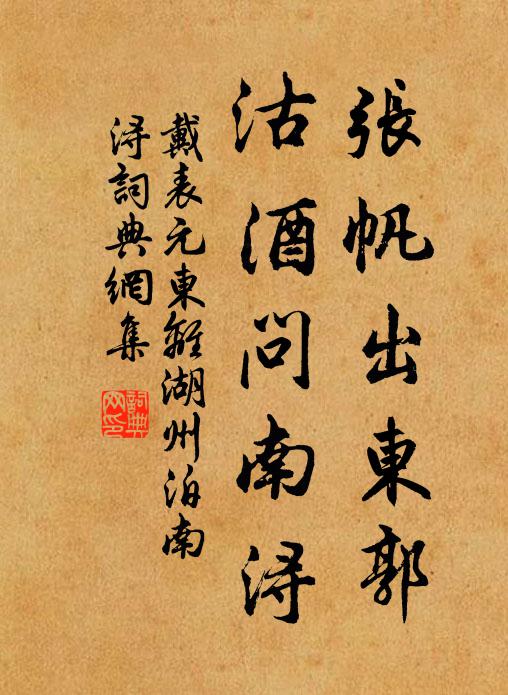 張帆出東郭
沽酒問南潯
戴表元東離湖州泊南
潯詞典網集
詞典網印